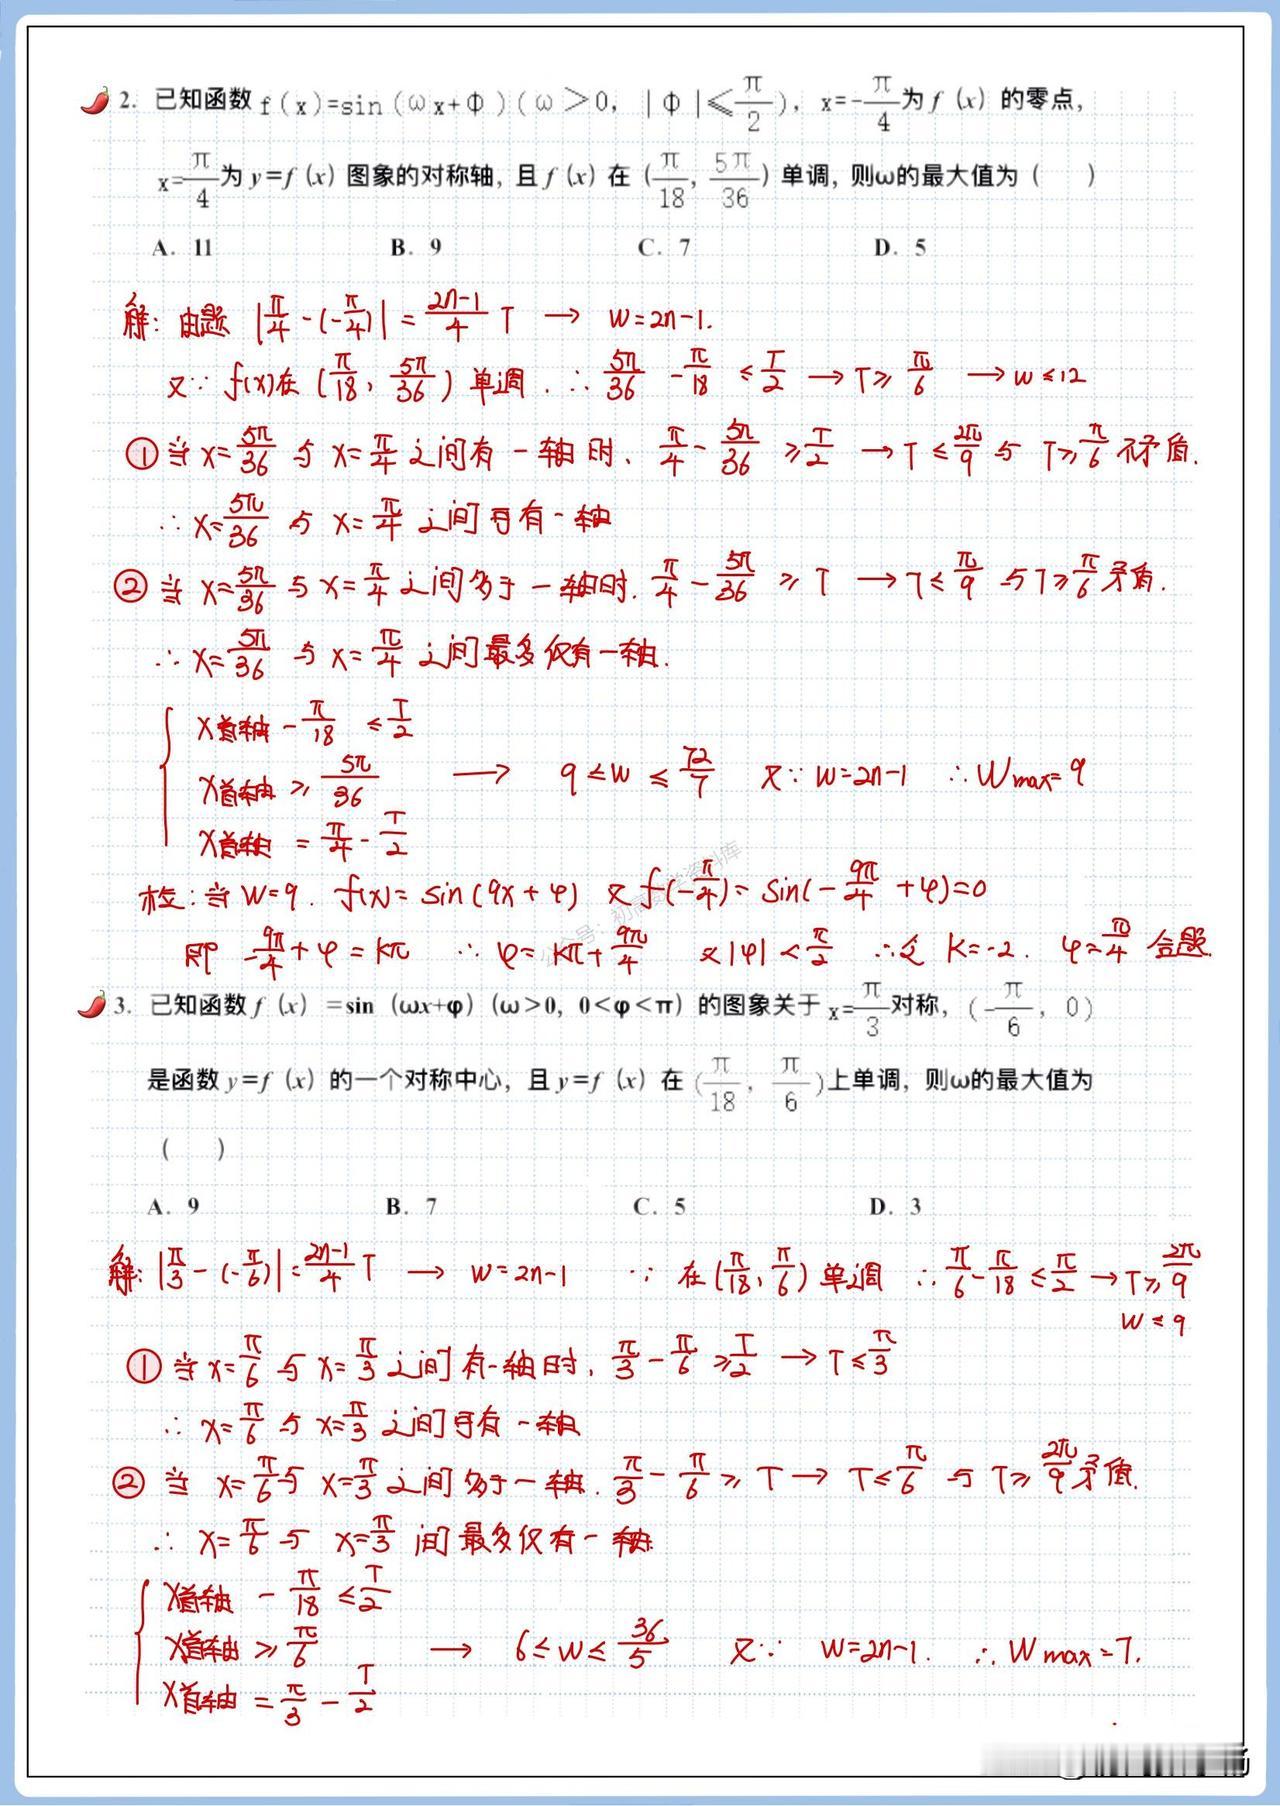 2. 已知函数 f(x)=sin(ωx+Φ)(ω＞0, |Φ|≤π/2), x=-π/4为f(x)的零点,
x=π/4为y=f(x)图象的对称轴,且f(x)在(π/18, 5π/36)单调,则ω的最大值为( )
A. 11 B. 9 C. 7 D. 5
解: 由题 |π/4-(-π/4)|=(2n-1)/4 T → W=2n-1.
又∵ f(x)在(π/18, 5π/36)单调. ∴ 5π/36-π/18≤T/2 → T≥π/6 → W≤12
①当x=5π/36与x=π/4之间有一轴时. π/4-5π/36≥T/2 → T≤2π/9与T≥π/6不矛盾.
∴x=5π/36与x=π/4之间可有一轴
②当x=5π/36与x=π/4之间多于一轴时. π/4-5π/36≥T → T≤π/9与T≥π/6矛盾.
∴x=5π/36与x=π/4之间最多仅有一轴.
x首轴-π/18≤T/2
x首轴≥5π/36 → 9≤W≤72/7 又∵W=2n-1 ∴Wmax=9
x首轴=π/4-T/2
检:当W=9. f(x)=sin(9x+φ) 又f(-π/4)=sin(-9π/4+φ)=0
即 -9π/4+φ=kπ ∴φ=kπ+9π/4 又|φ|<π/2 ∴令k=-2. φ=π/4 合题.
3. 已知函数f(x)=sin(ωx+φ)(ω>0, 0<φ<π)的图象关于x=π/3对称, (-π/6, 0)
是函数y=f(x)的一个对称中心,且y=f(x)在(π/18, π/6)上单调,则ω的最大值为
( )
A. 9 B. 7 C. 5 D. 3
解: |π/3-(-π/6)|=(2n-1)/4 T → W=2n-1 ∵在(π/18, π/6)单调 ∴π/6-π/18≤π/2 → T≥2π/9
W≤9
①当x=π/6与x=π/3之间有一轴时. π/3-π/6≥T/2 → T≤π/3
∴x=π/6与x=π/3之间可有一轴
②当x=π/6与x=π/3之间多于一轴. π/3-π/6≥T → T≤π/6与T≥2π/9矛盾.
∴x=π/6与x=π/3间最多仅有一轴.
x首轴-π/18≤T/2
x首轴≥π/6 → 6≤W≤36/5 又∵W=2n-1. ∴Wmax=7.
x首轴=π/3-T/2